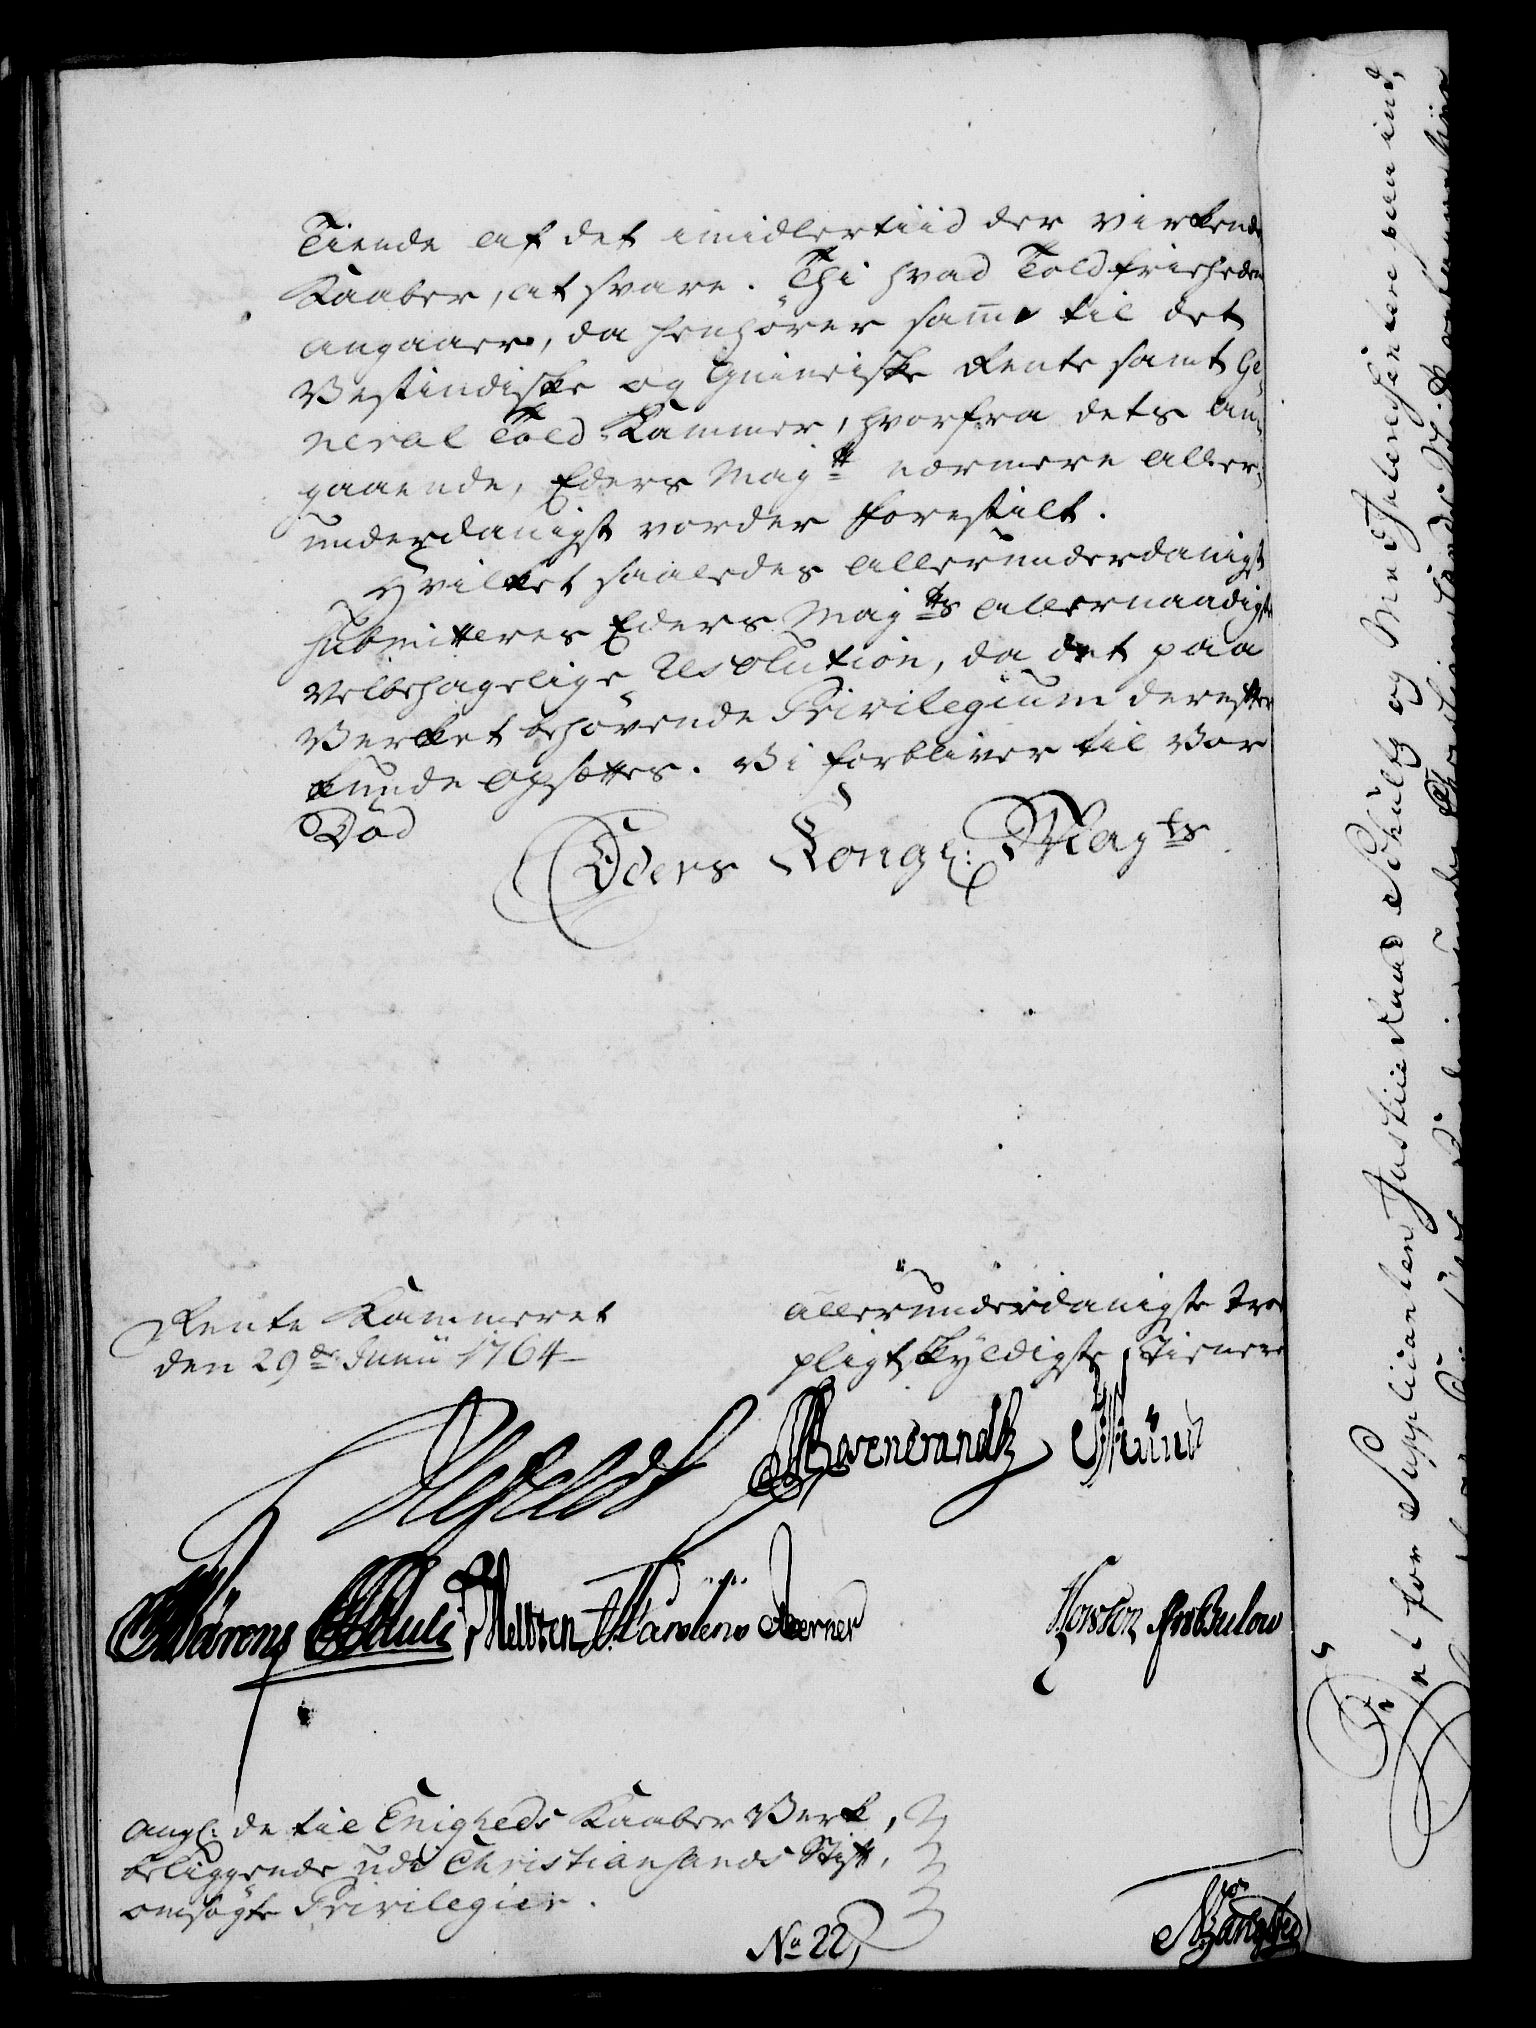 Tiende af det imidlertiid der virkende
Kaaber, at svare. Thi hvad Toldfrieheden
angaaer, da henhører samme til det
Vestindiske og Guineiske Rente samt Ge-
neral Told-Kammer, hvorfra dets an-
gaaende, Eders Maytt nærmere aller-
underdanigst vorder forestilt.
Hvilket saaledes allerunderdanigst
submitteres Eders Maytts allernaadigste
velbehagelige Resolution, da det paa
Verket behøvende Privilegium derefter
kunde opsættes. Vi forbliver til vor
Død
Eders Kongl: Mayts
Rente Kammeret
den 29de Junii 1764
allerunderdanigste troe
pligtskyldigste Tienere
Ahlefeldt Rosencrandtz
Pauli Meldten Berner
Bulow
Angl: de til Enigheds Kaaber Verk,
beliggende udi Christiansands Stift,
omsøgte Privilegier.
No 22,
for Supplicanten Justice Raad Schultz og Med Interessentere paa ind,